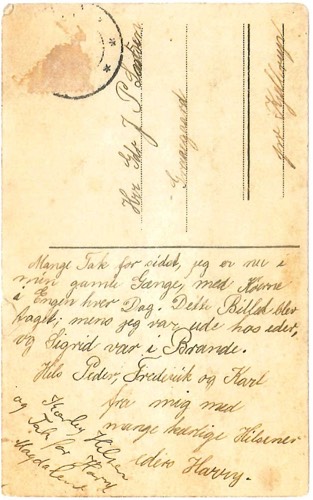 Hr. Gdr J P
pr Kjellerup
Mange Tak for sidst, jeg er nu i
min gamle Gænge, med Køerne
i Engen hver Dag. Dette Billed blev
taget, mens jeg var ude hos eder,
og Sigrid var i Brande.
Hils Peder, Frederik og Karl
fra mig med
mange kærlige Hilsener
eders Harry.
Kærlig Hilsen
og Tak for
Magdalene